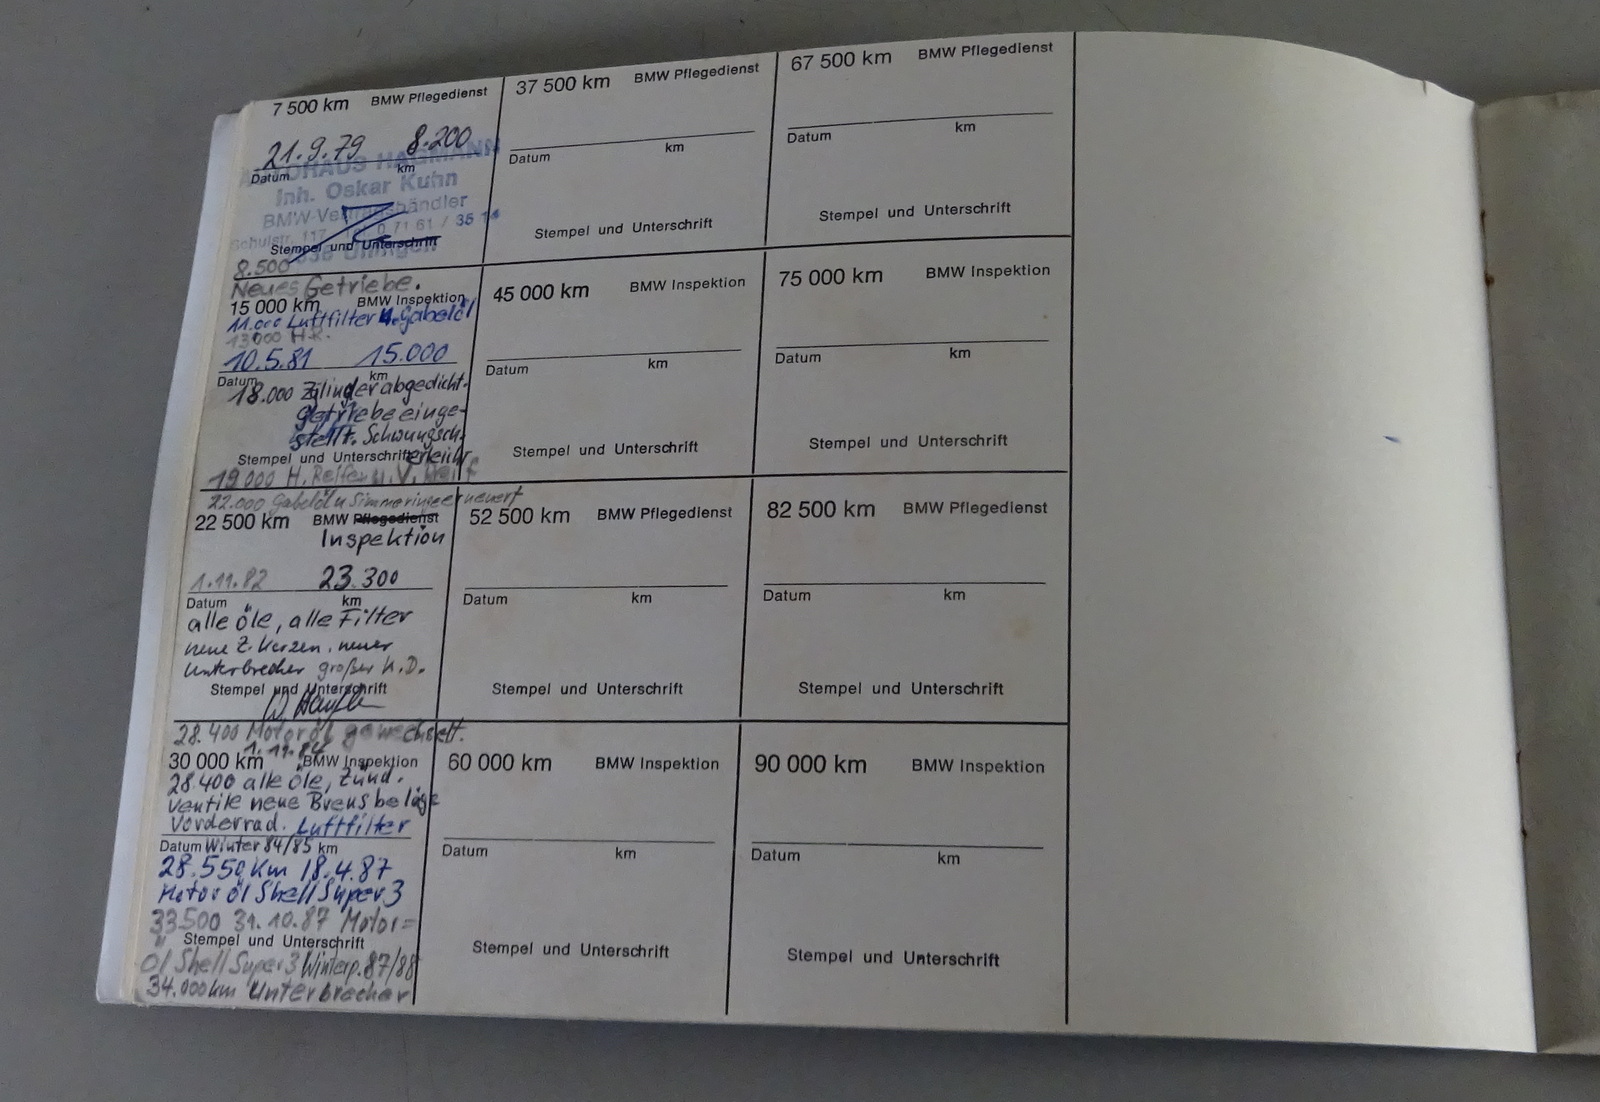 7 500 km BMW Pflegedienst
21.9.79 8.200
Datum km
AUTOHAUS HAGMANN
Inh. Oskar Kuhn
BMW-Vertragshändler
Schulstr. 117 Tel. 0 71 61 / 35 14
Stempel und Unterschrift
Uhingen
8.500
Neues Getriebe.
15 000 km BMW Inspektion
11.000 Luftfilter u. Gabelöl
13000 H.R.
10.5.81 15.000
Datum km
18.000 Zylinder abgedicht-
Getriebe einge-
stellt. Schwungsch.
Stempel und Unterschrift erleicht.
19000 H. Reifen u. V. Reif
22.000 Gabelöl u Simmeringe erneuert
22 500 km BMW Pflegedienst
Inspektion
1.11.82 23.300
Datum km
alle öle, alle Filter
neue Z. Kerzen, neuer
Unterbrecher großer K.D.
Stempel und Unterschrift
28.400 Motoröl gewechselt.
1.11.84
30 000 km BMW Inspektion
28.400 alle öle, Zünd.
Ventile neue Brensbeläge
Vorderrad. Luftfilter
Datum Winter 84/85 km
28.550 Km 18.4.87
Motoröl Shell Super 3
33500 31.10.87 Motor=
Stempel und Unterschrift
öl Shell Super 3 Winterp. 87/88
34.000 km Unterbrecher
37 500 km BMW Pflegedienst
Datum km
Stempel und Unterschrift
45 000 km BMW Inspektion
Datum km
Stempel und Unterschrift
52 500 km BMW Pflegedienst
Datum km
Stempel und Unterschrift
60 000 km BMW Inspektion
Datum km
Stempel und Unterschrift
67 500 km BMW Pflegedienst
Datum km
Stempel und Unterschrift
75 000 km BMW Inspektion
Datum km
Stempel und Unterschrift
82 500 km BMW Pflegedienst
Datum km
Stempel und Unterschrift
90 000 km BMW Inspektion
Datum km
Stempel und Unterschrift